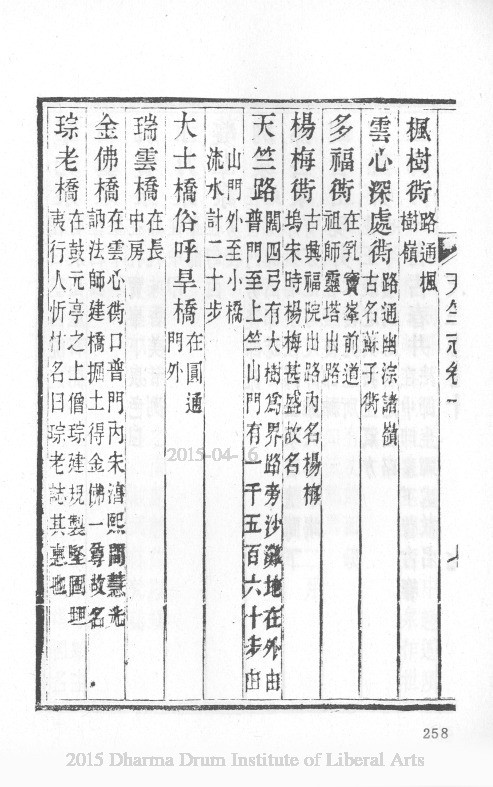 楓樹衖路通楓樹嶺
雲心深處衖路通幽淙諸嶺古名蘇子衖
多福衖在乳竇峯前道祖師靈塔出路
楊梅衖古興福院出路內名楊梅塢宋時楊梅甚盛故名
天竺路闊四弓有大樹為界路旁沙蘚地在外由普門至上竺山門有一千五百六十步由
山門外至小橋流水計二十步
大士橋俗呼旱橋在圓通門外
瑞雲橋在長中房
金佛橋在雲心衖口普門內宋淳熙間慧光訥法師建橋掘土得金佛一尊故名
琮老橋在鼓元亭之上僧琮建規製堅固理夷行人忻忭名曰琮老誌其惠也
天竺志卷一
七
258
2015-04-16
2015 Dharma Drum Institute of Liberal Arts